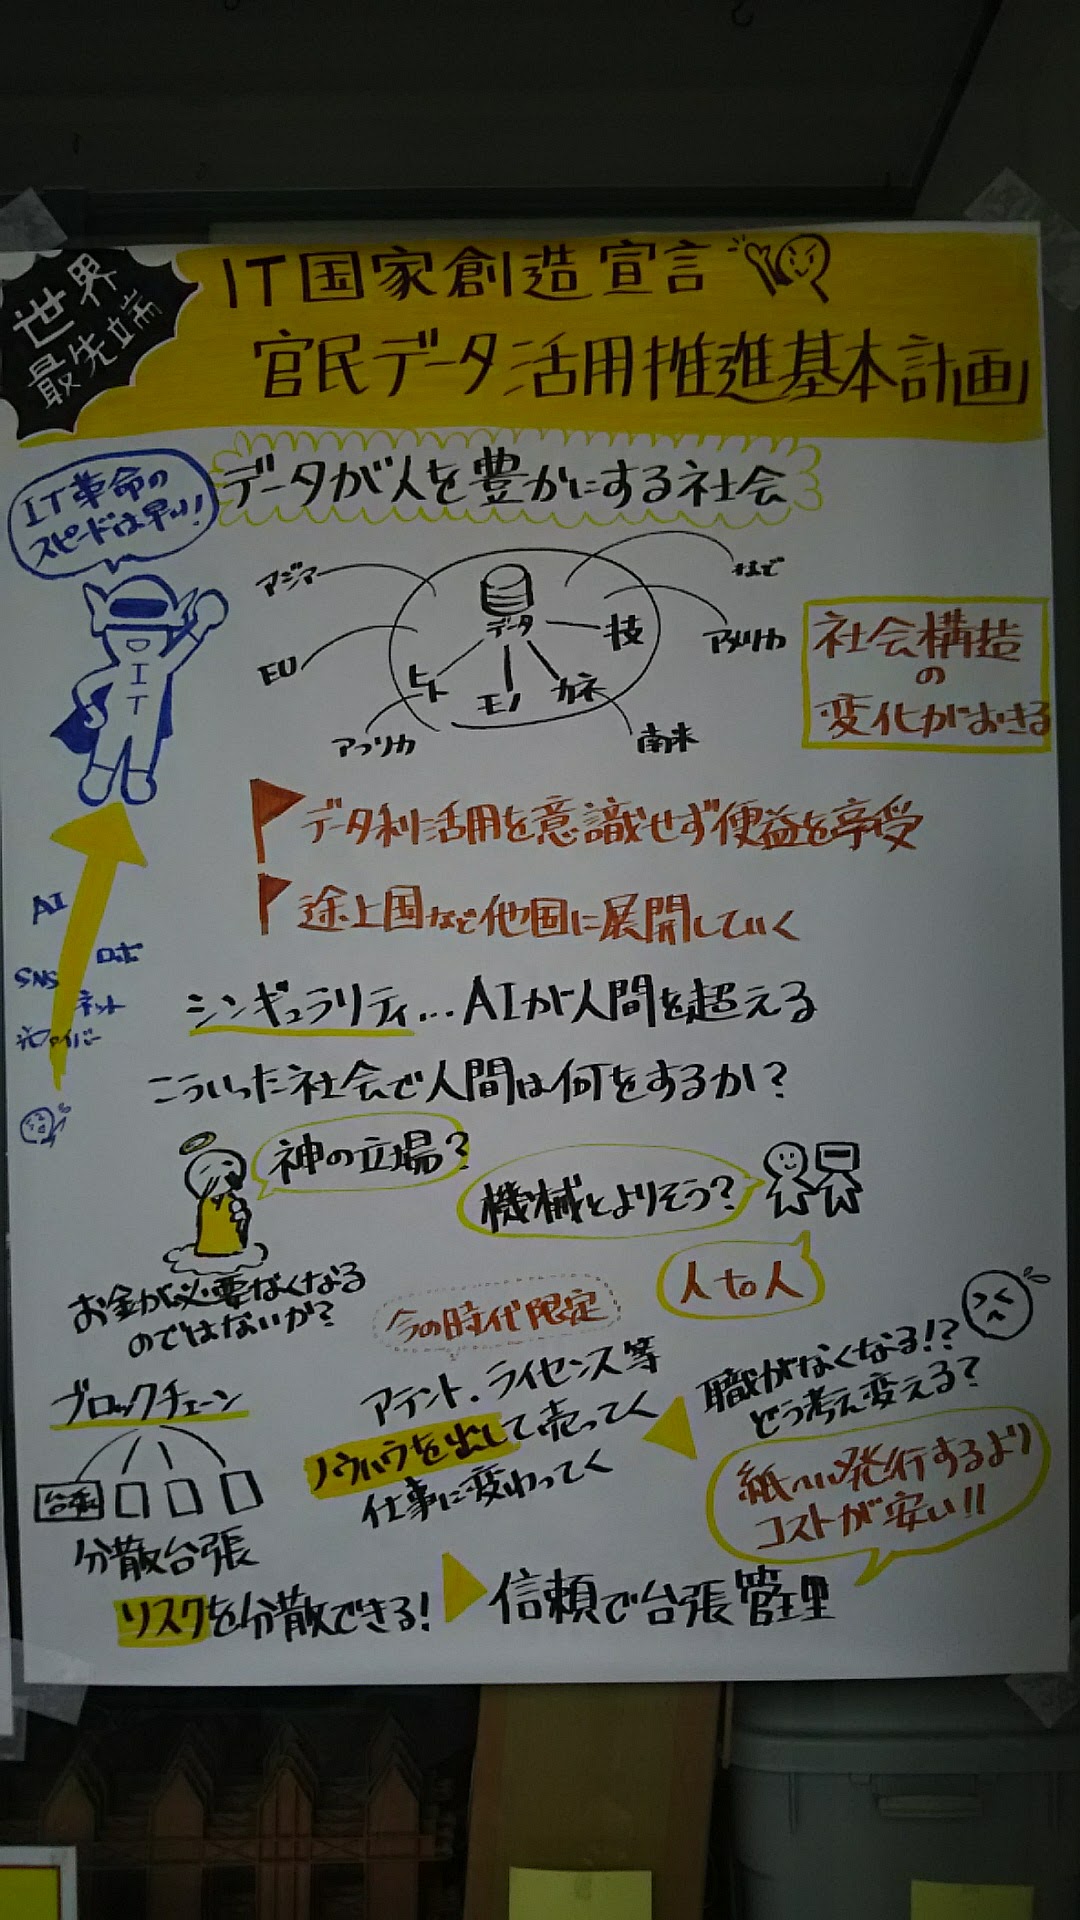 世界
最先端
IT国家創造宣言
官民データ活用推進基本計画
IT革命の
スピードは早い!
データが人を豊かにする社会
アジア
など
EU
データ
技
アメリカ
ヒト
モノ
カネ
アフリカ
南米
IT
社会構造
の
変化がおきる
データ利活用を意識せず便益を享受
途上国など他国に展開していく
AI
ロボ
SNS
ネット
光ファイバー
シンギュラリティ…AIが人間を超える
こういった社会で人間は何をするか?
神の立場?
機械とよりそう?
人to人
お金が必要なくなる
のではないか?
今の時代限定
アテント.ライセンス等
ノウハウを出して売ってく
仕事に変わってく
職がなくなる!?
どう考え変える?
ブロックチェーン
台張
分散台張
紙へい発行するより
コストが安い!!
リスクを分散できる!
信頼で台張管理